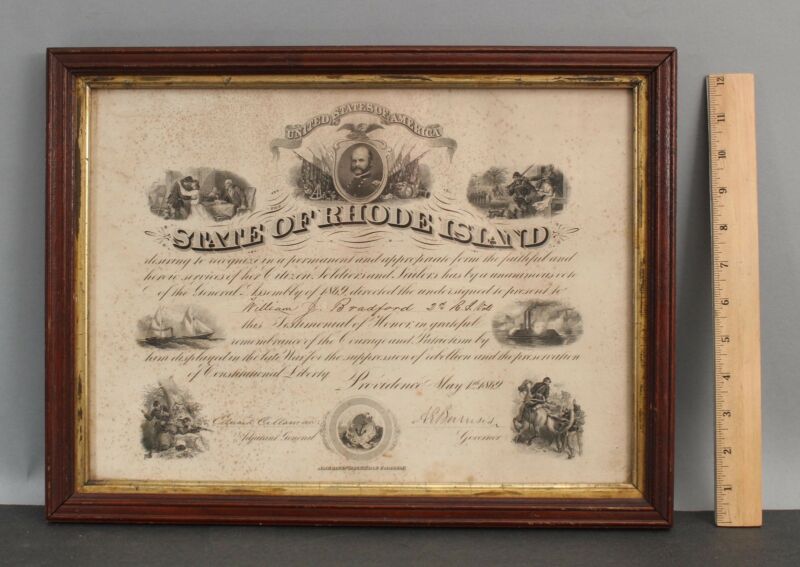 UNITED STATES OF AMERICA
STATE OF RHODE ISLAND
desiring to recognize in a permanent and appropriate form the faithful and
heroic services of her Citizen, Soldiers and Sailors has by a unanimous vote
of the General Assembly of 1869, directed the undersigned to present to
William J. Bradford 2d R.I. Vol
this Testimonial of Honor, in grateful
remembrance of the Courage and Patriotism by
him displayed in the late War for the suppression of rebellion and the preservation
of Constitutional Liberty.
Providence May 1st 1869
Adjutant General
Governor
12
11
10
9
8
7
6
5
4
3
2
1